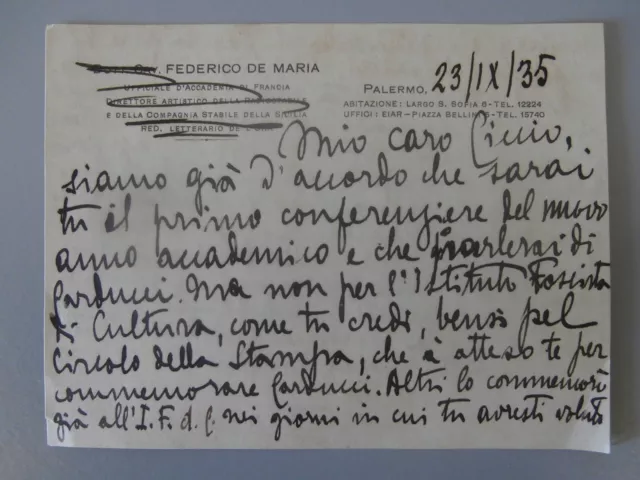 Dott. Cav. FEDERICO DE MARIA
UFFICIALE D'ACCADEMIA DI FRANCIA
DIRETTORE ARTISTICO DELLA RADIOSTABILE
E DELLA COMPAGNIA STABILE DELLA SICILIA
RED. LETTERARIO DE L'ORA
PALERMO, 23/IX/35
ABITAZIONE: LARGO S. SOFIA 6 - TEL. 12224
UFFICI: EIAR - PIAZZA BELLINI 5 - TEL. 15740
Mio caro Ciccio,
siamo già d'accordo che sarai
tu il primo conferenziere del nuovo
anno accademico e che parlerai di
Carducci. Ma non per l'Istituto Fascista
di Cultura, come tu credi, bensì pel
Circolo della Stampa, che à atteso te per
commemorare Carducci. Altri lo commemorò
già all'I. F. d. C. nei giorni in cui tu avresti voluto